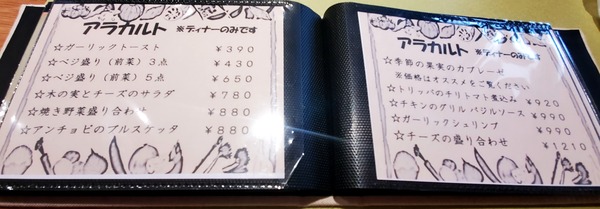 アラカルト ※ディナーのみです
☆ガーリックトースト ￥390
☆ベジ盛り（前菜）3点 ￥430
☆ベジ盛り（前菜）5点 ￥650
☆木の実とチーズのサラダ ￥780
☆焼き野菜盛り合わせ ￥880
☆アンチョビのブルスケッタ ￥880
アラカルト ※ディナーのみです
☆季節の果実のカプレーゼ
※価格はオススメをご覧ください
☆トリッパのチリトマト煮込み ￥920
☆チキンのグリル バジルソース ￥990
☆ガーリックシュリンプ ￥990
☆チーズの盛り合わせ ￥1210